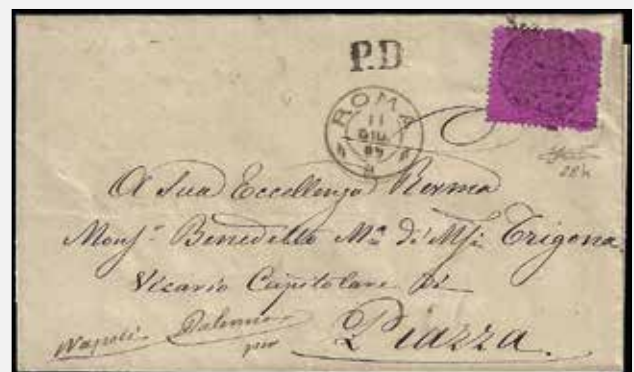 P.D
ROMA
11
GIU
69
A Sua Eccellenza Revma
Monsr. Benedetto Ma. di Trigona
Vicario Capitolare di
Napoli Palermo per Piazza